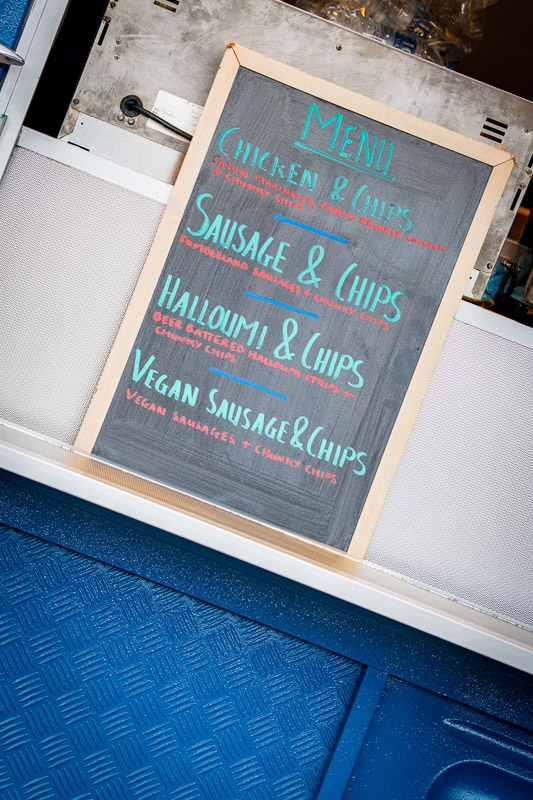 MENU
CHICKEN & CHIPS
CAJUN MARINATED, PANKO BREADED CHICKEN
+ CHUNKY CHIPS
SAUSAGE & CHIPS
CUMBERLAND SAUSAGES + CHUNKY CHIPS
HALLOUMI & CHIPS
BEER BATTERED HALLOUMI STRIPS +
CHUNKY CHIPS
VEGAN SAUSAGE & CHIPS
VEGAN SAUSAGES + CHUNKY CHIPS